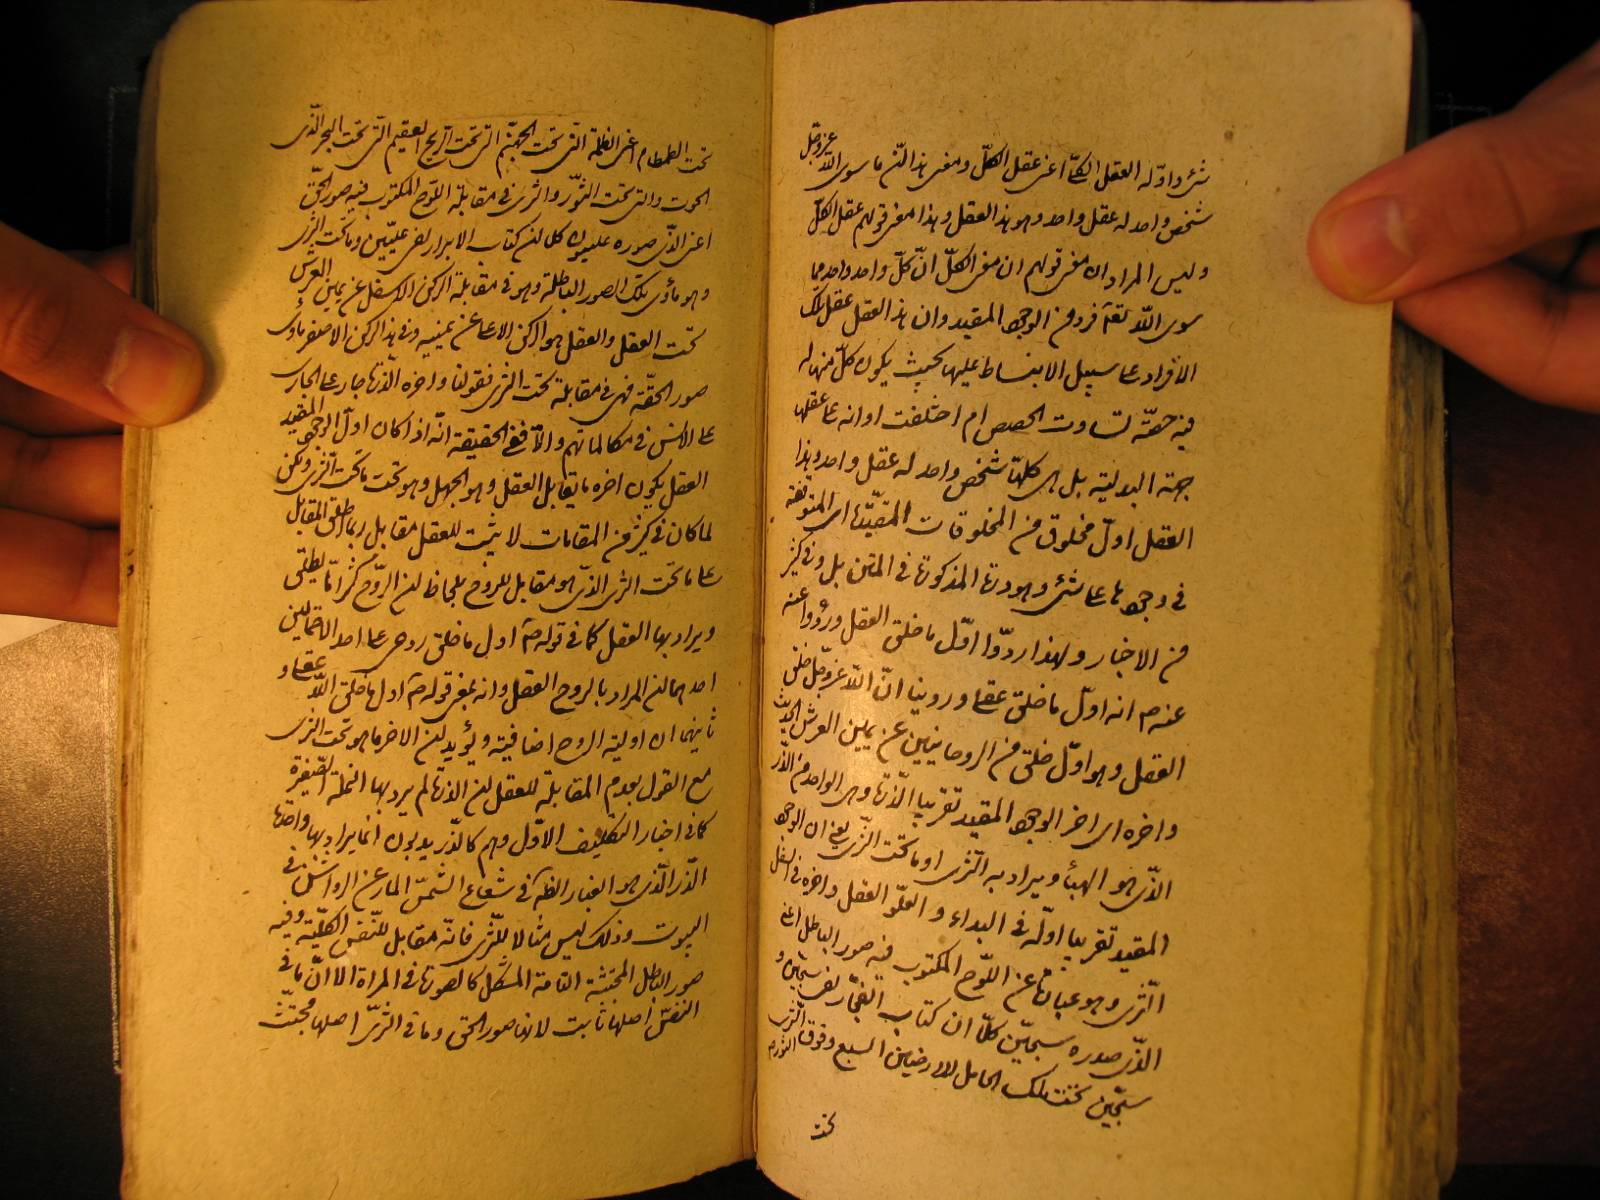 شيء واوّله العقل الكلّي اعني عقل الكلّ ومعنى هذا انّ ما سوى اللّه عزّ وجلّ
شخص واحد له عقل واحد وهو هذا العقل وهذا معنى قولهم عقل الكلّ
وليس المراد ان معنى قولهم ان معنى الكلّ انّ كلّ واحد واحد مما
سوى اللّه تعالى فرد من الوجود المقيد وان هذا العقل عقل تلك
الافراد على سبيل الانبساط عليها بحيث يكون كلّ منها له
فيه حصّة تساوت الحصص ام اختلفت او انه على عقلها
جهة البدلية بل هي كلها شخص واحد له عقل واحد وهذا
العقل اوّل مخلوق من المخلوقات المقيّدة اي المتوقفة
في وجودها على شيء وجودتها المذكورة في المتن بل وفي كثير
من الاخبار ولهذا رووا اوّل ما خلق العقل ورووا عنه
عنه ص انه اوّل ما خلق عقلي وروينا انّ اللّه عزّ وجل خلق
العقل وهو اوّل خلق من الروحانيين عن يمين العرش الحديث
واخره اي اخر الوجود المقيد تقريبا الذّرّة وهي الواحد من الذّر
الذّي هو الهباء ويراد به الثرى او ما تحت الثّرى يعني ان الوجود
المقيد تقريبا اوّله في البداء والعلوّ العقل واخره في السفل
الثّرى وهو عبارة عن اللّوح المكتوب فيه صور الباطل اعني
الذّي صدره سجّين كلّا ان كتاب الفجّار لفي سجّين و
سجّين تحت الملك الحامل للارضين السبع وفوق الثّرى الثور م
تحت
تحت الطمطام اعني الظلمة الّتي تحت الجهنّم الّتي تحت الريح العقيم الّتي تحت البحر الذّي
الحوت والّتي تحت الثّور والثرى في مقابلة اللّوح المكتوب فيه صور الحقّ
اعني الذّي صوره عليون كلا ان كتاب الابرار لفي عليّين وما تحت الثرى
وهو مأوى تلك الصور الباطلة وهو في مقابلة الركن الاسفل عن يمين العرش
تحت العقل والعقل هو الركن الاعلى عن يمينه وفي هذا الركن الاصفر مأوى
صور الحقّة فهي في مقابلة تحت الثرى فقولنا واخره الذرّة جار على الجاري
على الالسن في مكالماتهم والّا ففي الحقيقة انّه اذا كان اول الوجود المقيد
العقل يكون اخره ما يقابل العقل وهو الجهل وهو تحت ما تحت الثّرى ولكن
لما كان في كثير من المقامات لا يثبت للعقل مقابل ربما يطلق المقابل
على ما تحت الثرى الذّي هو مقابل للروح بلحاظ ان الرّوح كثيرا ما يطلق
ويراد بها العقل كما في قوله ص اول ما خلق روحي على احد الاحتمالين
احدهما ان المراد بالروح العقل وانه بمعنى قوله ص اول ما خلق اللّه عقلي و
ثانيهما ان اولية الروح اضافية ويؤيد ان الاخر ما هو تحت الثرى
مع القول بعدم المقابلة للعقل ان الذرّة لم يرد بها النملة الصّغيرة
كما في اخبار التكليف الاوّل وهم كالذّر يدبون انما يراد بها واحدة
الذّر الّذي هو الغبار الظاهر في شعاع الشمس المار عن الرواشن في
البيوت وذلك ليس مثالا للثّرى فانّه مقابل للنّفس الكلّية وفيه
صور الباطل المجتثة التامة الشكل كالصورة في المراة الا انّ ما في
النفس اصلها ثابت لانها صور الحق وما في الثرى اصلها مجتث